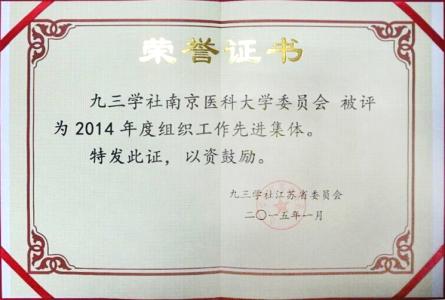 荣誉证书
九三学社南京医科大学委员会 被评
为2014年度组织工作先进集体。
特发此证，以资鼓励。
九三学社江苏省委员会
二〇一五年一月